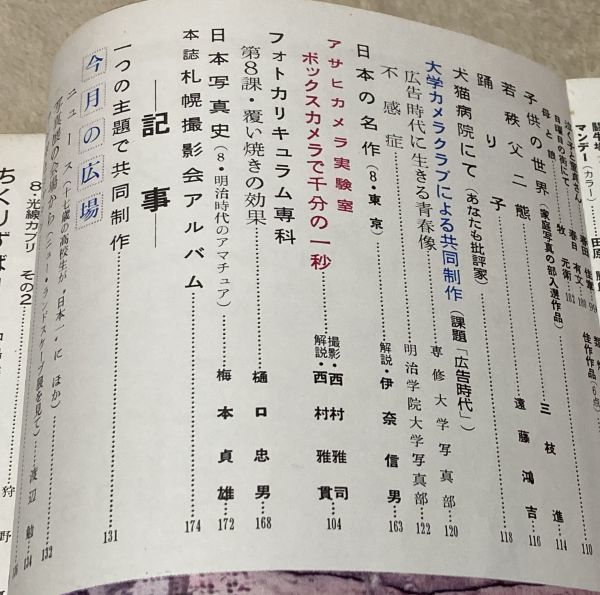 マンデー(カラー)
日曜日の街にて
春日有文 100
母と娘
牧元衛 103
子供の世界(家庭写真の部入選作品)
佳作作品(6点) 110
若秩父二態
三枝進 114
踊り子
遠藤鴻吉 116
犬猫病院にて(あなたも批評家) 118
大学カメラクラブによる共同制作(課題「広告時代」)
広告時代に生きる青春像 専修大学写真部 120
不感症 明治学院大学写真部 122
日本の名作(8・東京) 解説・伊奈信男 163
アサヒカメラ実験室
ボックスカメラで千分の一秒 撮影・西村雅司 解説・西村雅貫 104
フォトカリキュラム専科
第8課・覆い焼きの効果 樋口忠男 168
日本写真史(8・明治時代のアマチュア) 梅本貞雄 172
本誌札幌撮影会アルバム 174
―記事―
一つの主題で共同制作 131
今月の広場
ニュース(十七歳の高校生が“日本一”に ほか) 132
写真展の会場から(ニュー・ランドスケープ展を見て) 渡辺勉 134
8・光線カブリ その2
ちくりずば
狩野